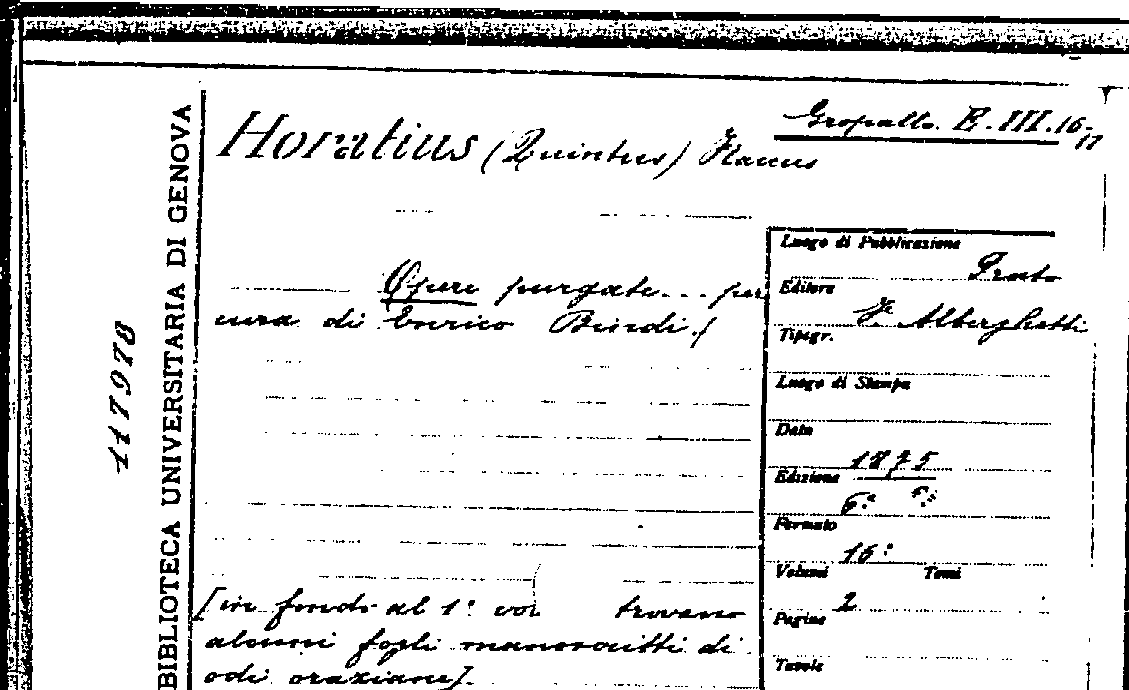 Gropallo. E. III. 16-17
Horatius (Quintus) Flaccus
Opere purgate... per
cura di Enrico Bindi./
[in fondo al 1° vol trovano
alcuni fogli manoscritti di
odi oraziane].
Luogo di Pubblicazione
Prato
Editore
F. Alberghetti
Tipogr.
Luogo di Stampa
Data
1875
Edizione
6.ª
Formato
16°
Volumi Tomi
2
Pagine
Tavole
BIBLIOTECA UNIVERSITARIA DI GENOVA
117978